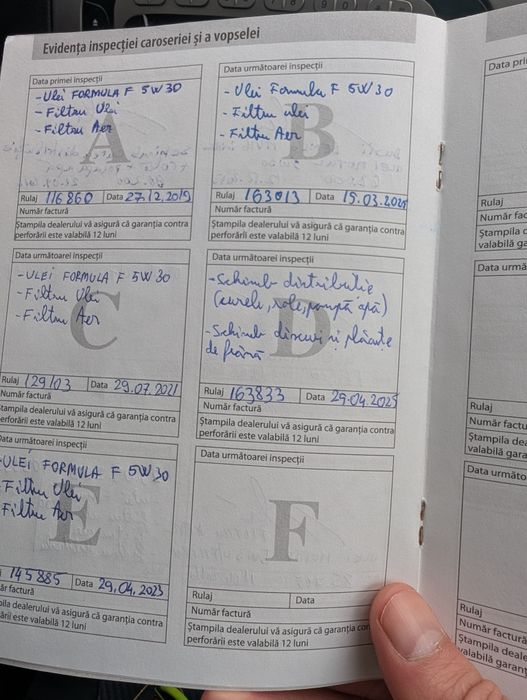 Evidența inspecției caroseriei și a vopselei
Data primei inspecții
- Ulei FORMULA F 5W30
- Filtru Ulei
- Filtru Aer
A
Rulaj 116860 Data 27.12.2019
Număr factură
Ștampila dealerului vă asigură că garanția contra
perforării este valabilă 12 luni
Data următoarei inspecții
- Ulei Formula F 5W30
- Filtru ulei
- Filtru Aer
B
Rulaj 163013 Data 15.03.2025
Număr factură
Ștampila dealerului vă asigură că garanția contra
perforării este valabilă 12 luni
Data următoarei inspecții
- ULEI FORMULA F 5W30
- Filtru Ulei
- Filtru Aer
C
Rulaj 129103 Data 29.07.2021
Număr factură
Ștampila dealerului vă asigură că garanția contra
perforării este valabilă 12 luni
Data următoarei inspecții
- Schimb distributie
(curele, role, pompă apă)
- Schimb discuri și plăcuțe
de frână
D
Rulaj 163833 Data 29.04.2025
Număr factură
Ștampila dealerului vă asigură că garanția contra
perforării este valabilă 12 luni
Data următoarei inspecții
-ULEI FORMULA F 5W30
Filtru Ulei
Filtru Aer
E
145885 Data 29.04.2023
factură
dealerului vă asigură că garanția contra
este valabilă 12 luni
Data următoarei inspecții
F
Rulaj Data
Număr factură
Ștampila dealerului vă asigură că garanția con
perforării este valabilă 12 luni
Data pri
Rulaj
Număr fac
Ștampila d
valabilă ga
Data urmă
Rulaj
Număr factu
Ștampila dea
valabilă gara
Data următo
Rulaj
Număr factură
Ștampila deale
valabilă garan